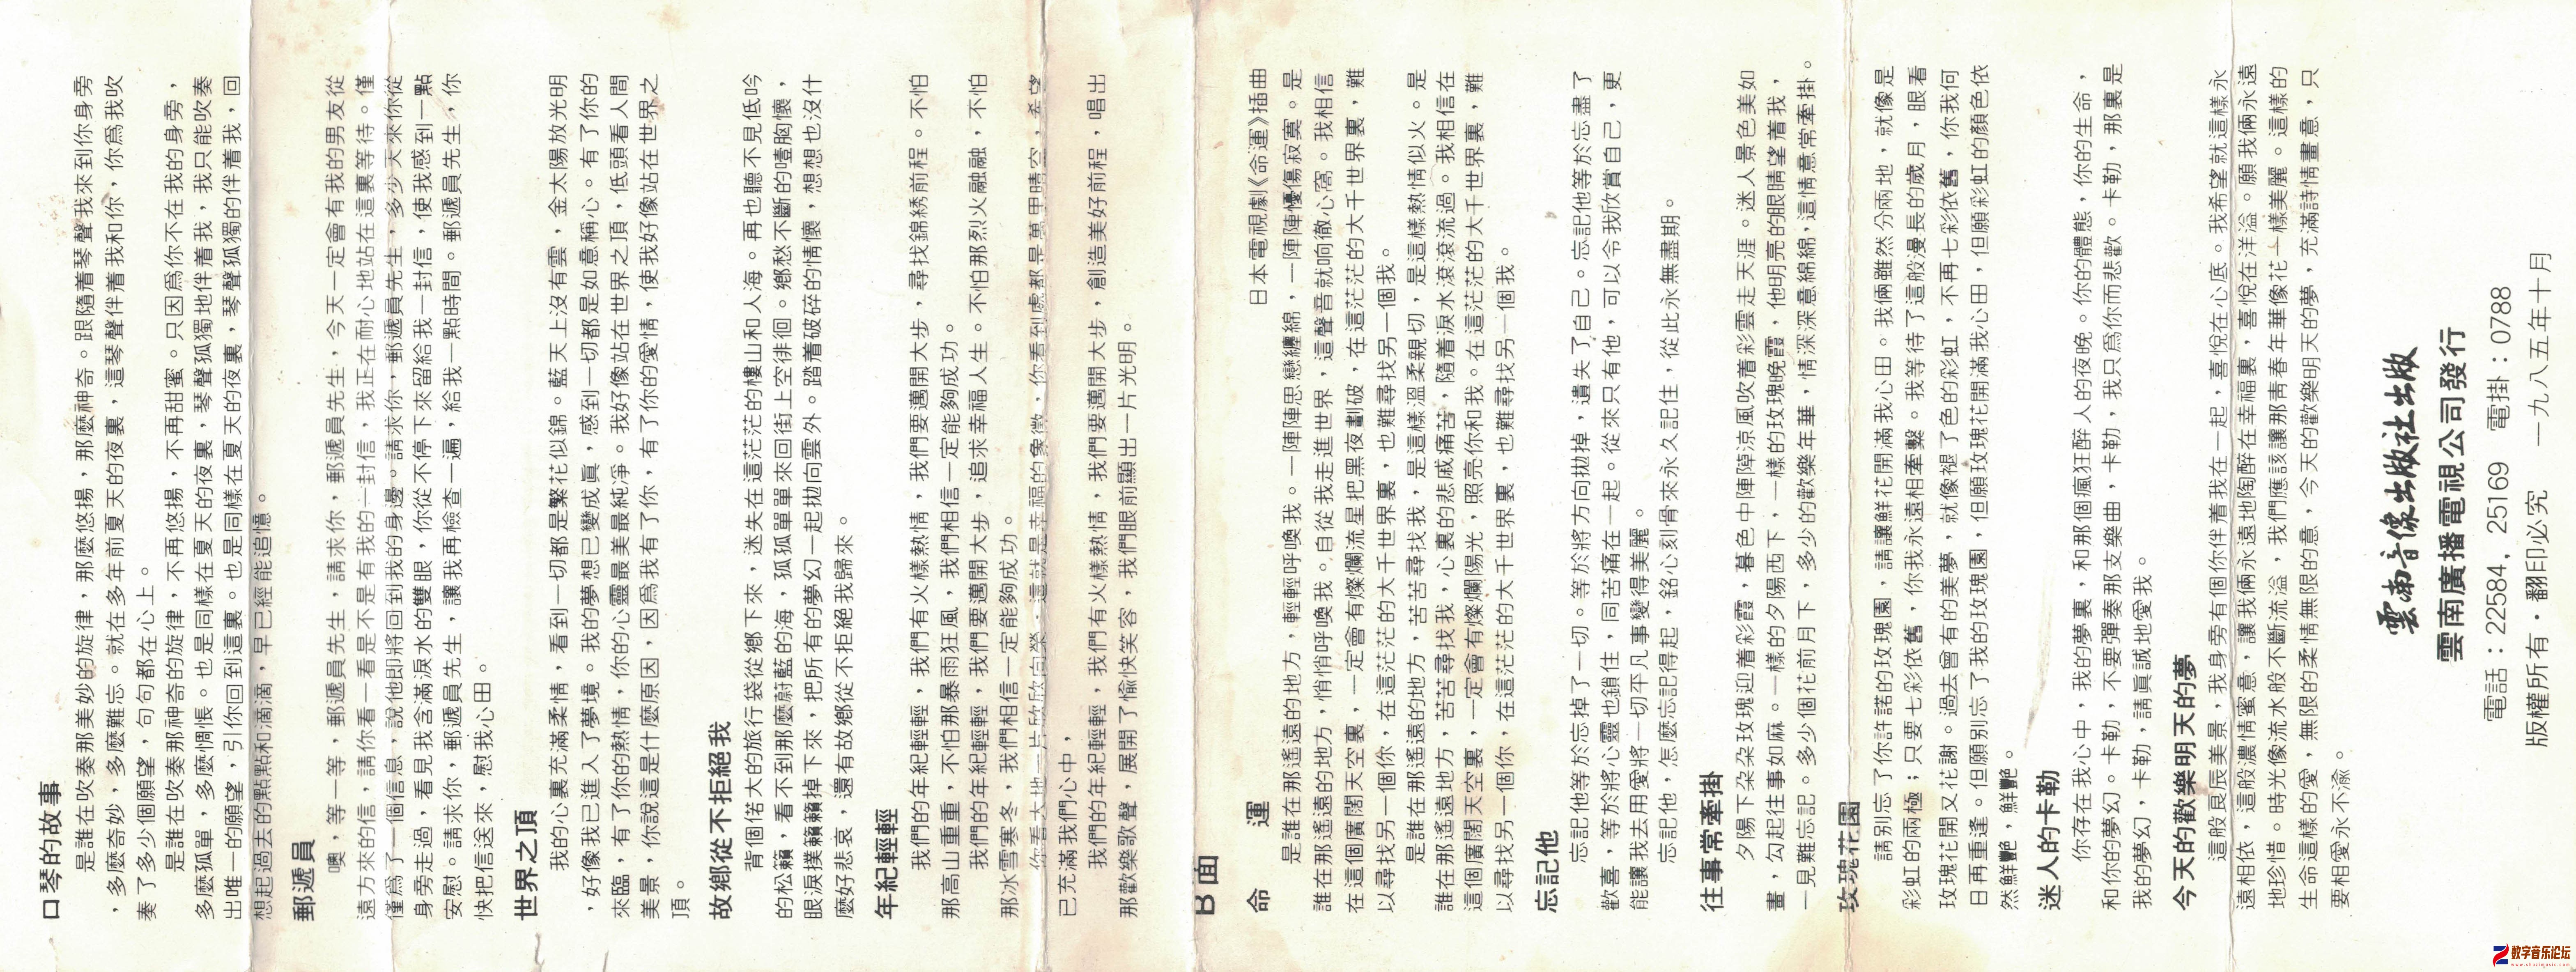 口琴的故事
是誰在吹奏那美妙的旋律，那麼悠揚，那麼神奇。跟隨着琴聲我來到你身旁
，多麼奇妙，多麼難忘。就在多年前夏天的夜裏，這琴聲伴着我和你，你爲我吹
奏了多少個願望，句句都在心上。
是誰在吹奏那神奇的旋律，不再悠揚，不再甜蜜。只因爲你不在我的身旁，
多麼狐單，多麼惆悵。也是同樣在夏天的夜裏，琴聲狐獨地伴着我，我只能吹奏
出唯一的願望，引你回到這裏。也是同樣在夏天的夜裏，琴聲狐獨的伴着我，回
想起過去的點點和滴滴，早已經能追憶。
郵遞員
噢，等一等，郵遞員先生，請求你，郵遞員先生，今天一定會有我的男友從
遠方來的信，請你看一看是不是有我的一封信，我正在耐心地站在這裏等待。僅
僅爲了一個信息，說他即將回到我的身邊。請求你，郵遞員先生，多少天來你從
身旁走過，看見我含滿淚水的雙眼，你從不停下來留給我一封信，使我感到一點
安慰。請求你，郵遞員先生，讓我再檢查一遍，給我一點時間。郵遞員先生，你
快把信送來，慰我心田。
世界之頂
我的心裏充滿柔情，看到一切都是繁花似錦。藍天上沒有雲，金太陽放光明
，好像我已進入了夢境。我的夢想已變成眞，感到一切都是如意稱心。有了你的
來臨，有了你的熱情，你的心靈最美最純凈。我好像站在世界之頂，低頭看人間
美景，你說這是什麼原因，因爲我有了你，有了你的愛情，使我好像站在世界之
頂。
故鄉從不拒絕我
背個偌大的旅行袋從鄉下來，迷失在這茫茫的樓山和人海。再也聽不見低吟
的松籟，看不到那麼蔚藍的海，孤孤單單來回街上空徘徊。鄉愁不斷的噎胸懷，
眼淚撲簌簌掉下來，把所有的夢幻一起拋向雲外。踏着破碎的情懷，想想也沒什
麼好悲哀，還有故鄉從不拒絕我歸來。
年紀輕輕
我們的年紀輕輕，我們有火樣熱情，我們要邁開大步，尋找錦綉前程。不怕
那高山重重，不怕那暴雨狂風，我們相信一定能夠成功。
我們的年紀輕輕，我們要邁開大步，追求幸福人生。不怕那烈火融融，不怕
那冰雪寒冬，我們相信一定能夠成功。
你看大地一片欣欣向榮，這就是幸福的象徵，你看到處都是萬里晴空，希望
已充滿我們心中，
我們的年紀輕輕，我們有火樣熱情，我們要邁開大步，創造美好前程，唱出
那歡樂歌聲，展開了愉快笑容，我們眼前顯出一片光明。
B面
命　運
日本電視劇《命運》插曲
是誰在那遙遠的地方，輕輕呼喚我。一陣陣思戀纏綿，一陣陣憂傷寂寞。是
誰在那遙遠的地方，悄悄呼喚我。自從我走進世界，這聲音就响徹心窩。我相信
在這個廣闊天空裏，一定會有燦爛流星把黑夜劃破，在這茫茫的大千世界裏，難
以尋找另一個你，在這茫茫的大千世界裏，也難尋找另一個我。
是誰在那遙遠的地方，苦苦尋找我，是這樣溫柔親切，是這樣熱情似火。是
誰在那遙遠地方，苦苦尋找我，心裏的悲戚痛苦，隨着淚水滾滾流過。我相信在
這個廣闊天空裏，一定會有燦爛陽光，照亮你和我。在這茫茫的大千世界裏，難
以尋找另一個你，在這茫茫的大千世界裏，也難尋找另一個我。
忘記他
忘記他等於忘掉了一切。等於將方向拋掉，遺失了自己。忘記他等於忘盡了
歡喜，等於將心靈也鎖住，同苦痛在一起。從來只有他，可以令我欣賞自己，更
能讓我去用愛將一切平凡事變得美麗。
忘記他，怎麼忘記得起，銘心刻骨來永久記住，從此永無盡期。
往事常牽掛
夕陽下朵朵玫瑰迎着彩霞，暮色中陣陣涼風吹着彩雲走天涯。迷人景色美如
畫，勾起往事如麻。一樣的夕陽西下，一樣的玫瑰晚霞，他明亮的眼睛望着我，
一見難忘記。多少個花前月下，多少的歡樂年華，情深深意綿綿，這情意常牽掛。
玫瑰花園
請别忘了你許諾的玫瑰園，請讓鮮花開滿我心田。我倆雖然分兩地，就像是
彩虹的兩極；只要七彩依舊，你我永遠相牽繫。我等待了這般漫長的歲月，眼看
玫瑰花開又花謝。過去曾有的美夢，就像褪了色的彩虹，不再七彩依舊，你我何
日再重逢。但願别忘了我的玫瑰園，但願玫瑰花開滿我心田，但願彩虹的顏色依
然鮮艷，鮮艷。
迷人的卡勒
你存在我心中，我的夢裏，和那個瘋狂醉人的夜晚。你的體態，你的生命，
和你的夢幻。卡勒，不要彈奏那支樂曲，卡勒，我只爲你而悲歡。卡勒，那裏是
我的夢幻，卡勒，請眞誠地愛我。
今天的歡樂明天的夢
這般良辰美景，我身旁有個你伴着我在一起，喜悅在心底。我希望就這樣永
遠相依，這般濃情蜜意，讓我倆永遠地陶醉在幸福裏，喜悅在洋溢。願我倆永遠
地珍惜。時光像流水般不斷流溢，我們應該讓那青春年華像花一樣美麗。這樣的
生命這樣的愛，無限的柔情無限的意，今天的歡樂明天的夢，充滿詩情畫意，只
要相愛永不渝。
雲南音像出版社出版
雲南廣播電視公司發行
電話：22584，25169　電掛：0788
版權所有・翻印必究　一九八五年十月
数字音乐论坛